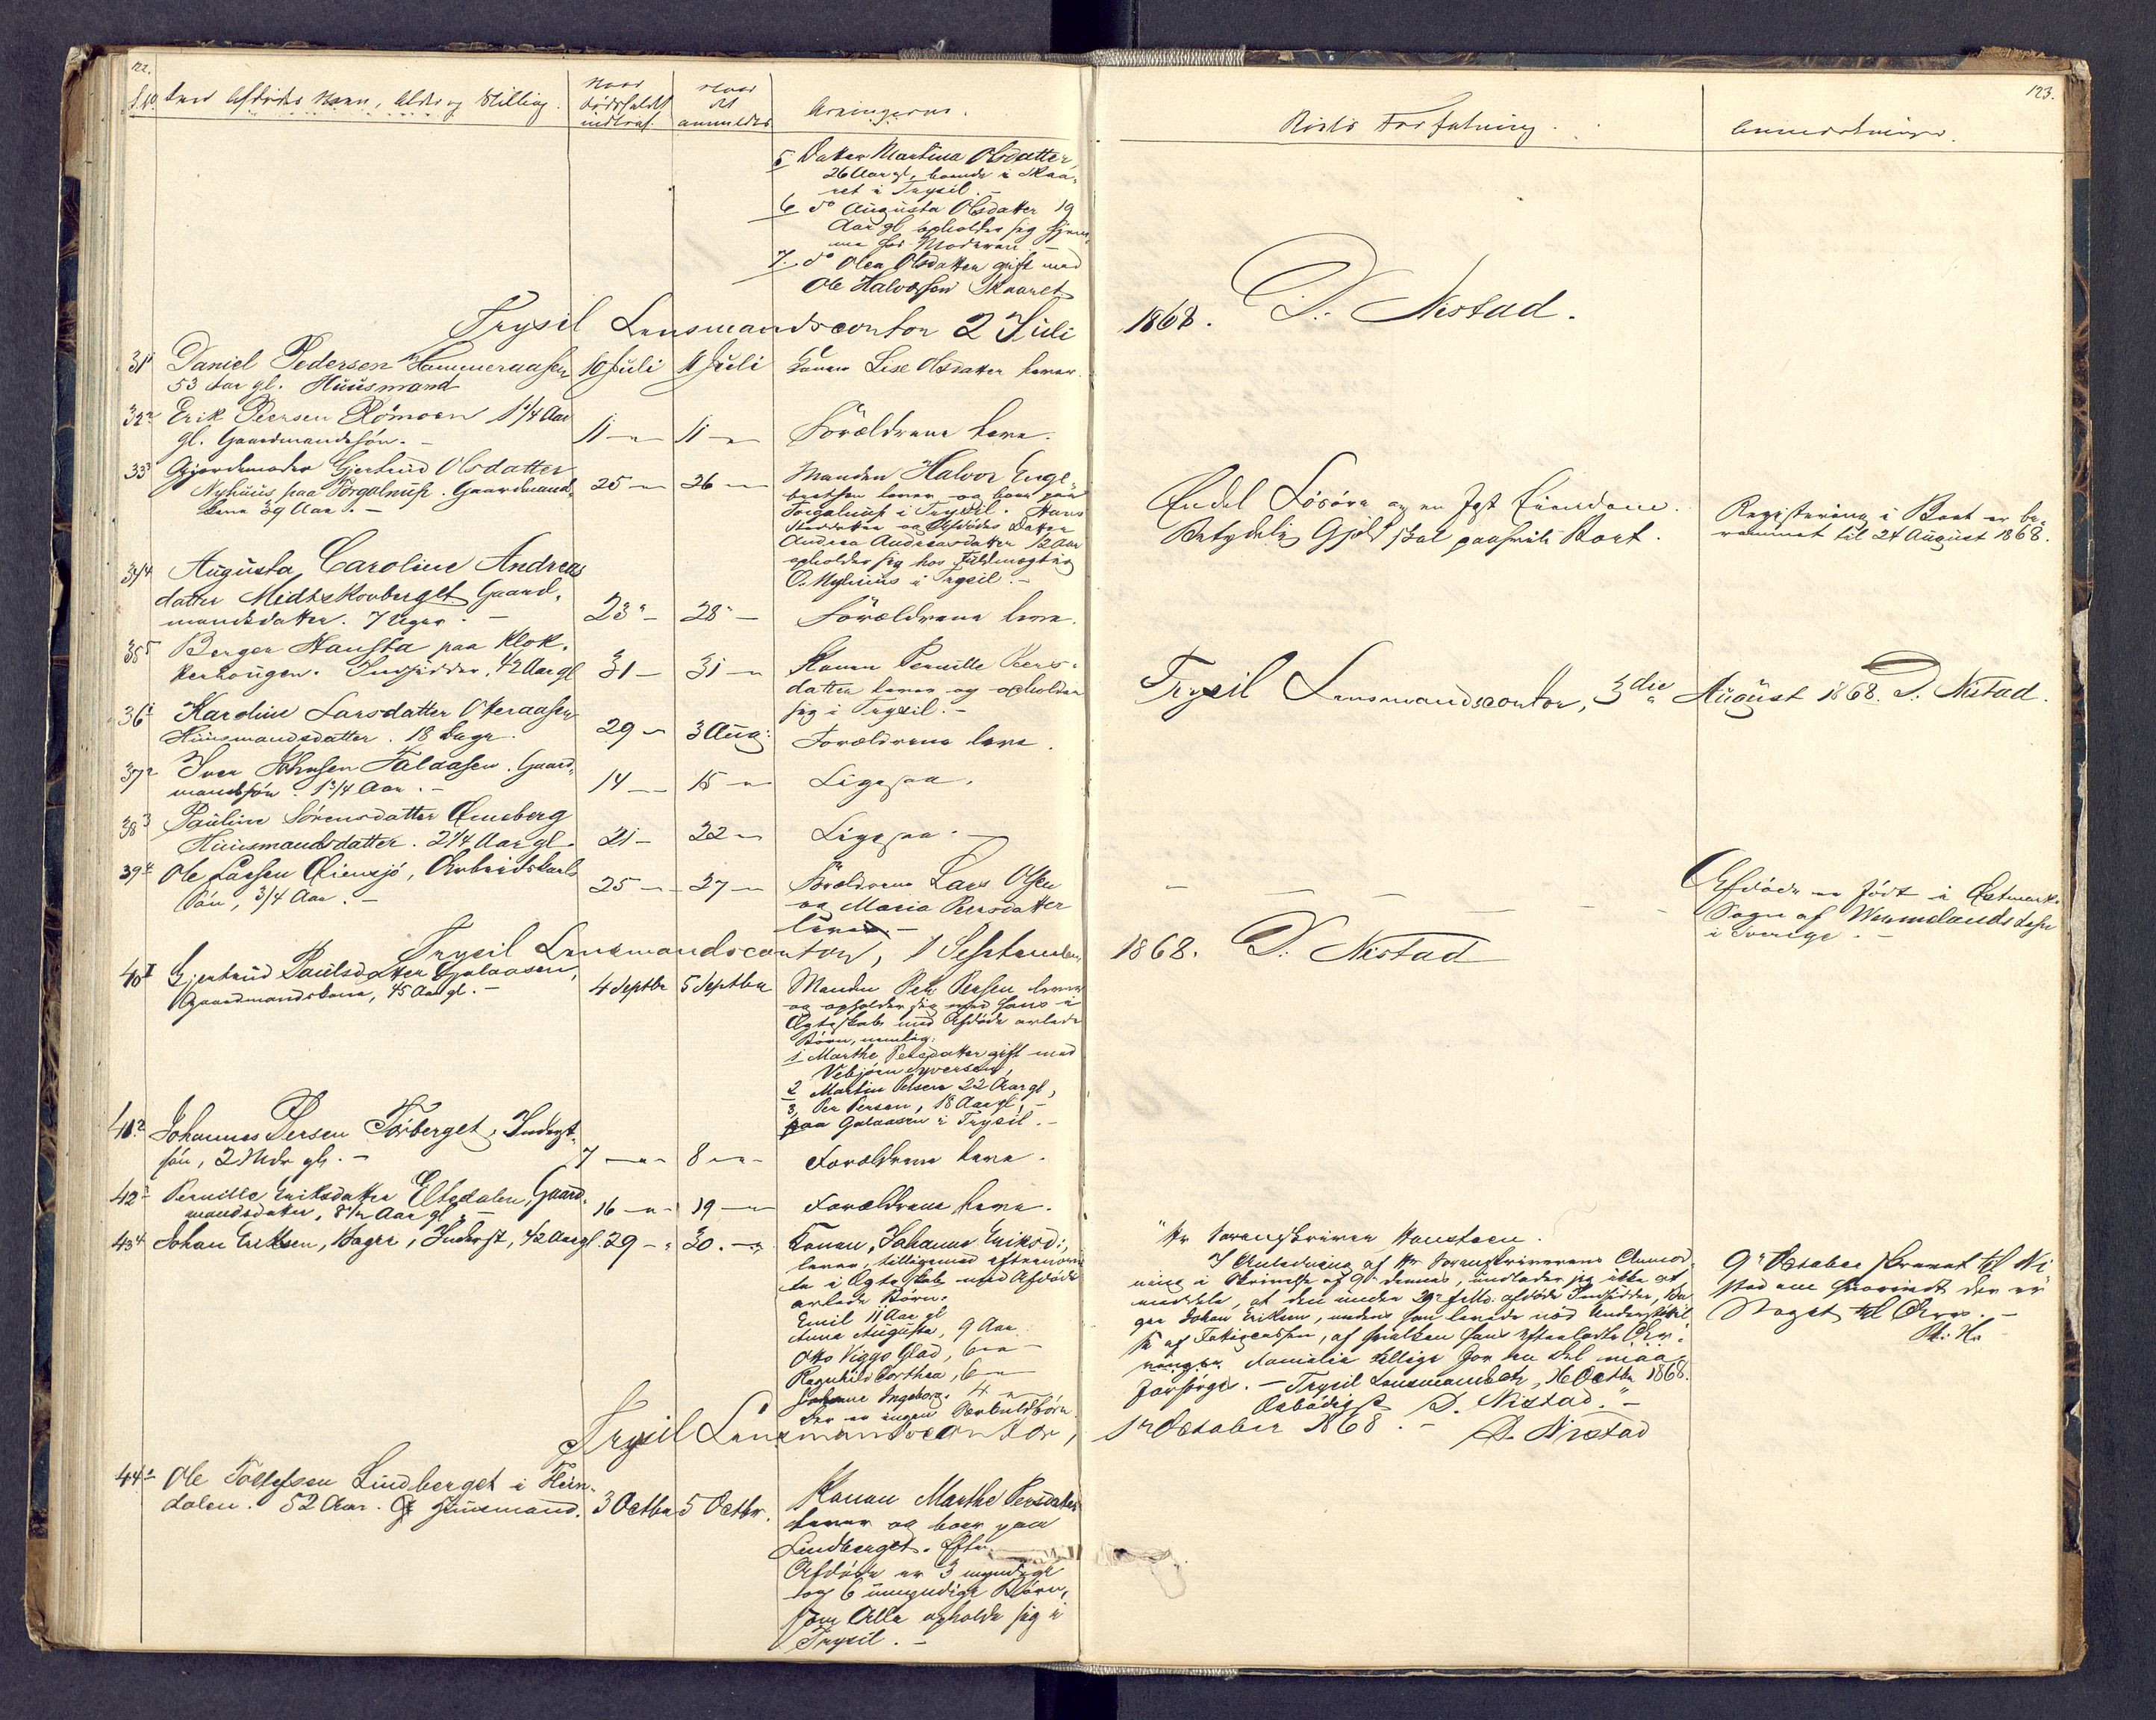 122.
Den Afdødes Navn, Alder og Stilling.
Naar
dødsfaldet
indtraf.
Naar
det
anmeldes
Arvingerne.
5 Datter Martina Olsdatter,
26 Aar gl. boende i Skaa-
ret i Trysil. -
6 do Augusta Olsdatter 19
Aar gl. opholder sig hjem-
me hos Moderen. -
7. do Olea Olsdatter gift med
Ole Halvorsen Skaaret
Trysil Lensmandscontor 2 Juli
31 1 Daniel Pedersen Hammeraasen
53 Aar gl. Huusmand
10 Juli
11 Juli
Konen Lise Olsdatter lever.
32 2 Erik Peersen Plømoen 1 1/4 Aar
gl. Gaardmandssøn. -
11 -
11 -
Forældrene leve.
33 3 Gjordemoder Gjertrud Olsdatter
Nyhuus paa Torgalnusp. Gaardmands-
kone 39 Aar. -
25 -
26 -
Manden Halvor Enge-
bretsen lever og boer paa
i Trysil. Hans
Steddatter og Afdødes Datter
Andrea Andreasdatter 12 Aar
opholder sig hos Fuldmægtig
O. Nyhuus i Trysil. -
34 4 Augusta Caroline Andreas
datter Midtskovberget Gaard-
mandsdatter. 7 Uger. -
23 -
28 -
Forældrene leve.
35 5 Berger Hansta paa Klok-
kerhougen. Indsidder, 42 Aar gl
31 -
31 -
Konen Pernille Peers-
datter lever og opholder
sig i Trysil. -
36 1 Karoline Larsdatter Oteraasen
Huusmandsdatter. 18 Dage.
29 -
3 Aug:
Forældrene leve.
37 2 Iver Johnsen Galaasen. Gaard-
mandssøn. 1 3/4 Aar. -
14 -
15 -
Ligesaa.
38 3 Pauline Sørensdatter Enuberg
Huusmandsdatter. 2 1/4 Aar gl.
21 -
22 -
Ligesaa. -
39 4 Ole Larsen Qiensjø, Arbeidskarls
Søn, 3/4 Aar. -
25 -
27 -
Forældrene Lars Olsen
og Maria Persdatter
leve. -
Trysil Lensmandscontor, 1 September
40 1 Gjertrud Paulsdatter Galaasen,
Gaardmandskone, 45 Aar gl. -
4 Septbr
5 Septbr
Manden Peder Persen lever
og opholder sig med hans i
Ægteskab med Afdøde avlede
Børn, nemlig:
1 Marthe Persdatter gift med
Vebjørn Syversen,
2 Martin Persen 22 Aar gl,
3, Per Persen, 18 Aar gl, -
paa Galaasen i Trysil. -
41 2 Johannes Persen Tørberget, Inderst-
søn, 2 Mdr gl. -
7 -
8 -
Forældrene leve.
42 3 Pernille Eriksdatter Eltedalen, Gaard-
mandsdatter, 8 1/2 Aar gl. -
16 -
19 -
Forældrene leve.
43 4 Johan Eriksen, Bager, Inderst, 42 Aar gl.
29 -
30. -
Konen, Johanne Eriksd:,
lever, tilligemed efternævn-
te i Ægteskab med Afdøde
avlede Børn.
Emil 11 Aar gl
Anna Augusta, 9 Aar
Otto Viggo Glad, 6 -
Ragnhild Dorthea, 6 -
Johanne Ingeborg, 4 -
Der er ingen Særkuldbørn.
Trysil Lensmandscontor,
44 1 Ole Tollefsen Lindberget i Flen-
dalen. 52 Aar. Huusmand.
3 Octbr
5 Octbr.
Konen Marthe Persdatter
lever og boer paa
Lindberget. Efter
Afdøde er 3 myndige
og 6 umyndige Børn,
som Alle opholde sig i
Trysil. -
123.
Boets Forfatning.
Anmærkninger.
1868. D. Nistad.
Endel Løsøre og en fast Eiendom.
Betydelig Gjæld skal paahvile Boet.
Registrering i Boet er be-
rammet til 24 August 1868.
Trysil Lensmandscontor, 3die August 1868. D. Nistad.
Afdøde er født i Østmarks
Sogn af Wermelands Lehn
i Sverige. -
1868. D. Nistad
"Hr Sorenskriver Hansteen.
I Anledning af Hr Sorenskriverens Anmod-
ning i Skrivelse af 9de dennes, undlader jeg ikke at
meddele, at den under 29de f. M. afdøde Indsidder, Ba-
ger Johan Eriksen, medens han levede nød Understøttel-
se af Fattigcassen, af hvilken hans efterladte Arv-
inger Familie tillige for en Del maa
forsørges. - Trysil Lensmandsctr, 16 Octbr 1868.
Ærbødigst D. Nistad." -
9de October skrevet til Ni
stad om hvorvidt der er
Noget til Arv. -
1ste October 1868. - D. Nistad